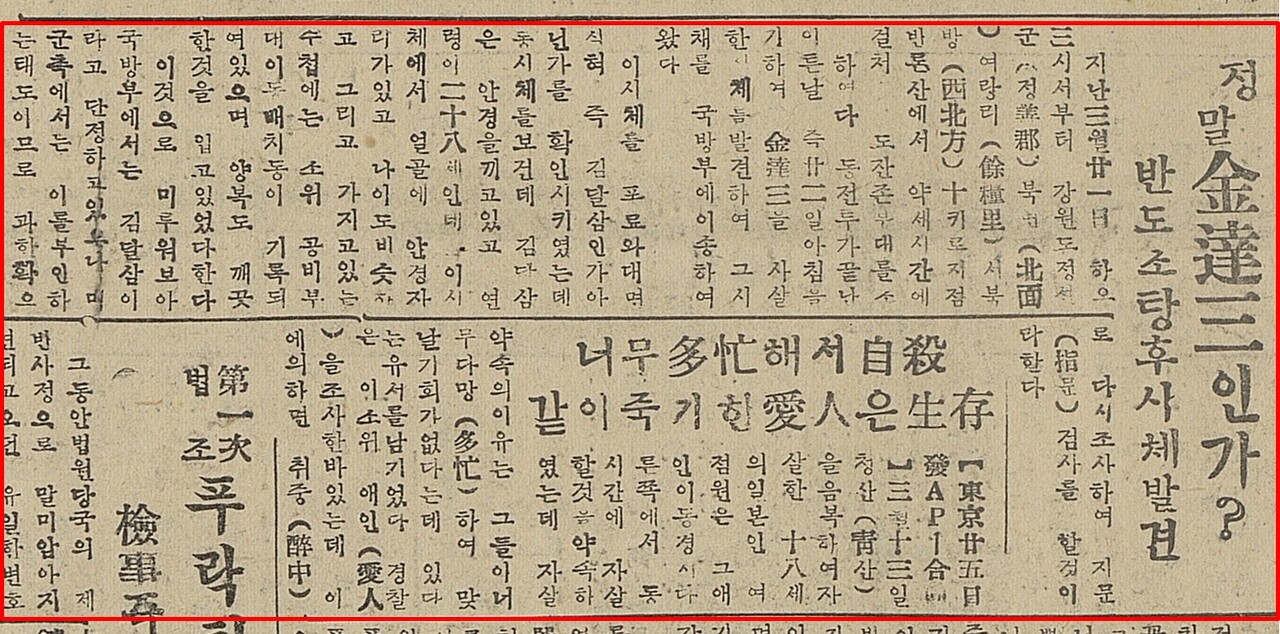 정말金達三인가?
반도조탕후사체발견
지난三월廿一日 하오
三시서부터 강원도정선
군(旌善郡) 북면(北面
)여량리(餘糧里)서북
방(西北方)十키로지점
반론산에서 약세시간에
걸처 도잔존부대를소
하여다 동전투가끝나
이튼날 즉廿二일아침을
기하여 金達三을 사살
한 체를발견하여 그시
채를 국방부에이송하여
왔다
이시체를 포로와대며
식혀 즉 김달삼인가아
닌가를 확인시키였는데
동시체를보건데 김달삼
은 안경을끼고있고 연
령이二十八세인데 이시
체에서 얼골에 안경자
리가있고 나이도비슷하
고 그리고 가지고있는
수첩에는 소위 공비부
대이동배치등이 기록되
여있으며 양복도 깨끗
한것을 입고있었다한다
이것으로 미루워보아
국방부에서는 김달삼이
라고 단정하고있으나 미
군측에서는 이를부인하
는태도이므로 과학확으
로 다시조사하여 지문
(指문)검사를 할것이
라한다
殺自서해忙多무너
存生은人愛한기죽이같
【東京廿五日
發AP|合
】三월十三일
청산(靑山)
을음복하여자
살한 十八세
의일본인 여
점원은 그애
인이동경시다
른쪽에서 동
시간에 자살
할것을약속하
였는데 자살
약속의이유는 그들이너
무다망(多忙)하여 맞
날기회가없다는데 있다
는유서를남기었다 경찰
은 이소위 애인(愛人
)을조사한바있는데 이
에의하면 취중(醉中)
第一次
법조푸락
檢事
그동안법원당국의 제
반사정으로 말미암아지
연되고오던 유일한변호